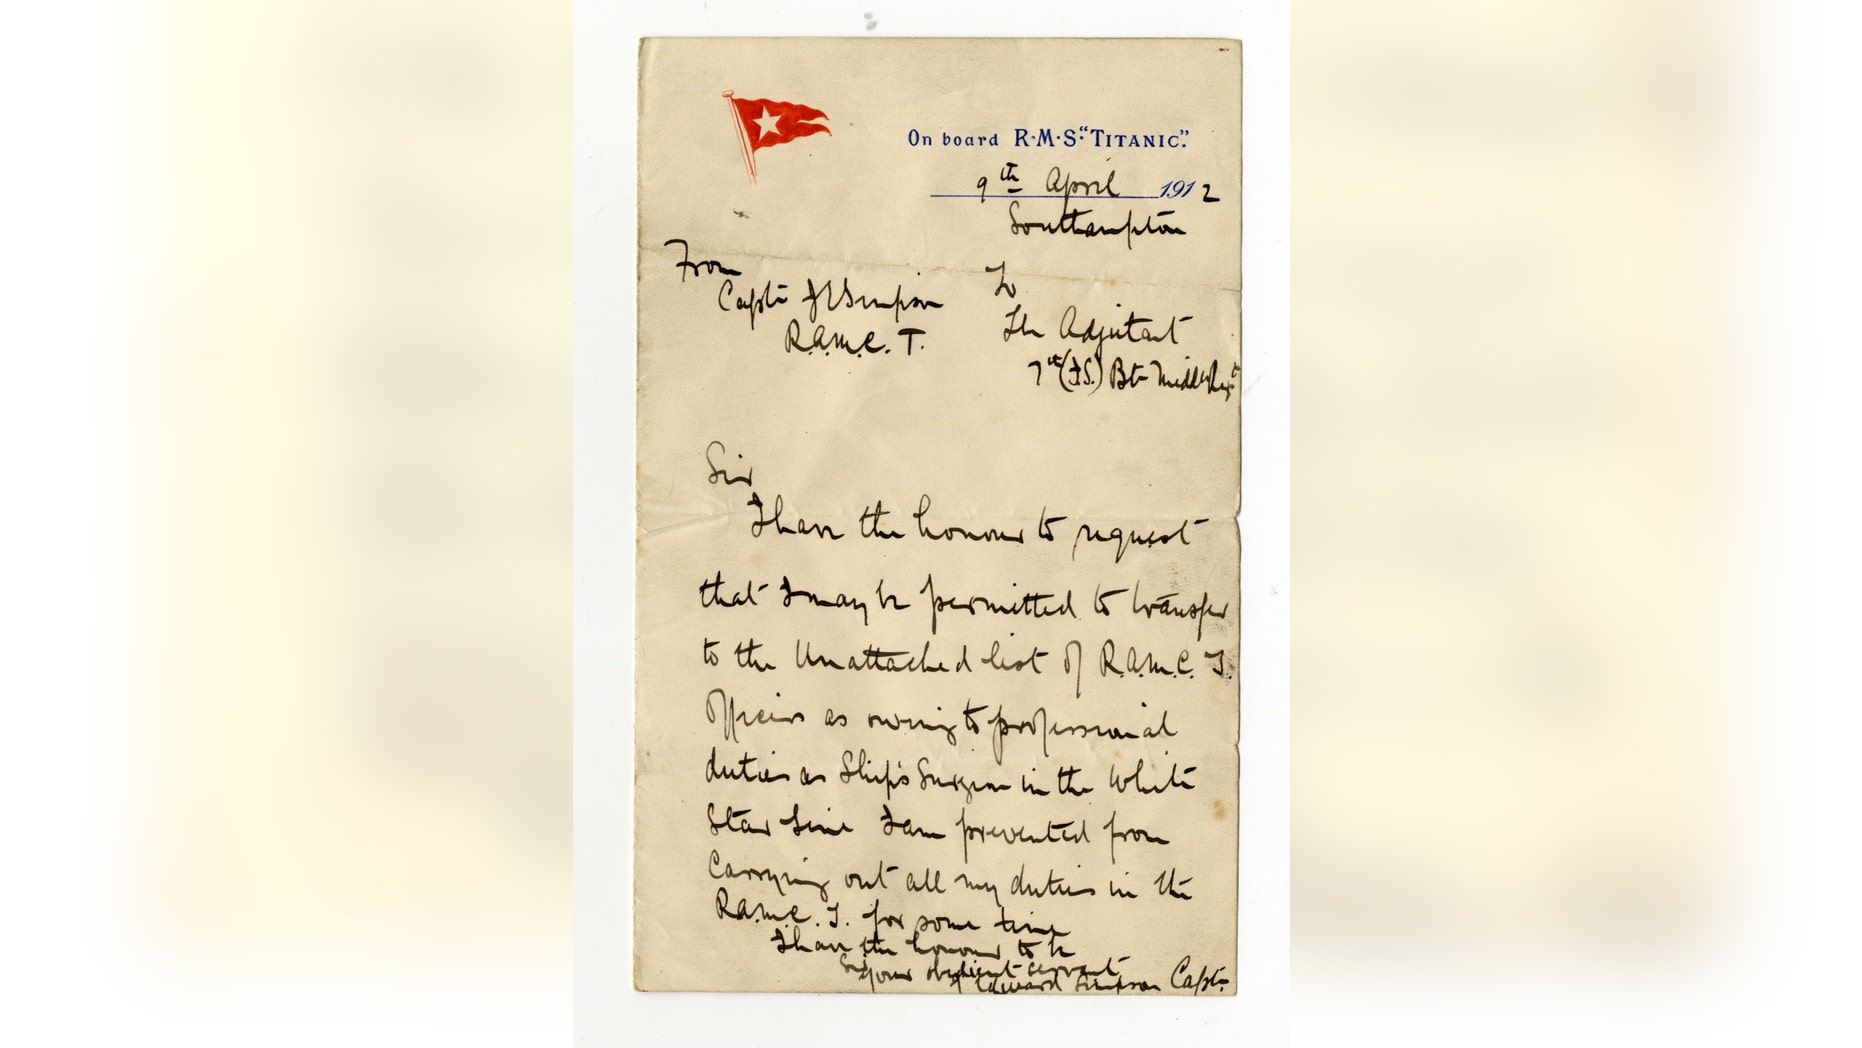 On board R·M·S·"TITANIC".
9th April 1912
Southampton
From
Captn J E Simpson
R.A.M.C. T.
To
The Adjutant
7th (F.S.) Bn Middx Regt
Sir
I have the honour to request
that I may be permitted to transfer
to the Unattached list of R.A.M.C. T.
Officers as owing to professional
duties as Ship's Surgeon in the White
Star Line I am prevented from
Carrying out all my duties in the
R.A.M.C. T. for some time
I have the honour to be
Sir your obedient servant
J Edward Simpson Captn.